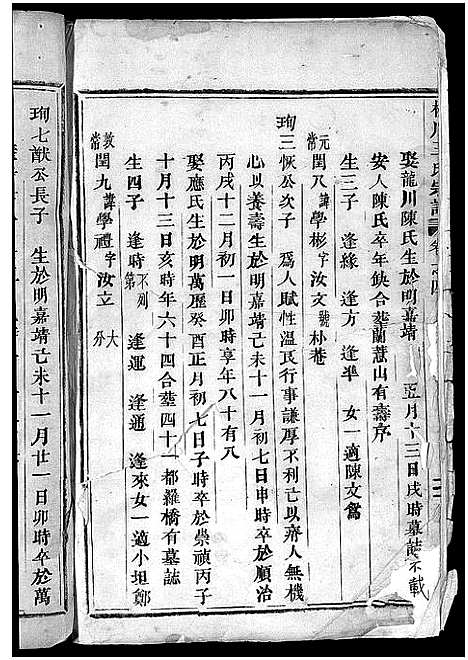 娶龍川陳氏生於明嘉靖 五月十三日戌時墓誌不載
安人陳氏卒年缺合葬蘭蕙山有壽序
生三子 逢緣 逢方 逢準 女一適陳文鴌
元常 閏八 諱學彬 字汝文 號朴菴
珣三恢公次子 爲人賦性溫民行事謙厚不利己以齊人無機
心以養壽生於明嘉靖己未十一月初七日申時卒於順治
丙戌十二月初一日卯時享年八十有八
娶應氏生於明萬歷癸酉正月初七日子時卒於崇禎丙子
十月十三日亥時年六十四合葬四十一都羅橋有墓誌
生四子 逢時 不列第 逢運 逢通 逢來 女一適小坦鄭
敦常 閏九 諱學禮 字汝立 大分
珣七猷公長子 生於明嘉靖己未十一月廿一日卯時卒於萬